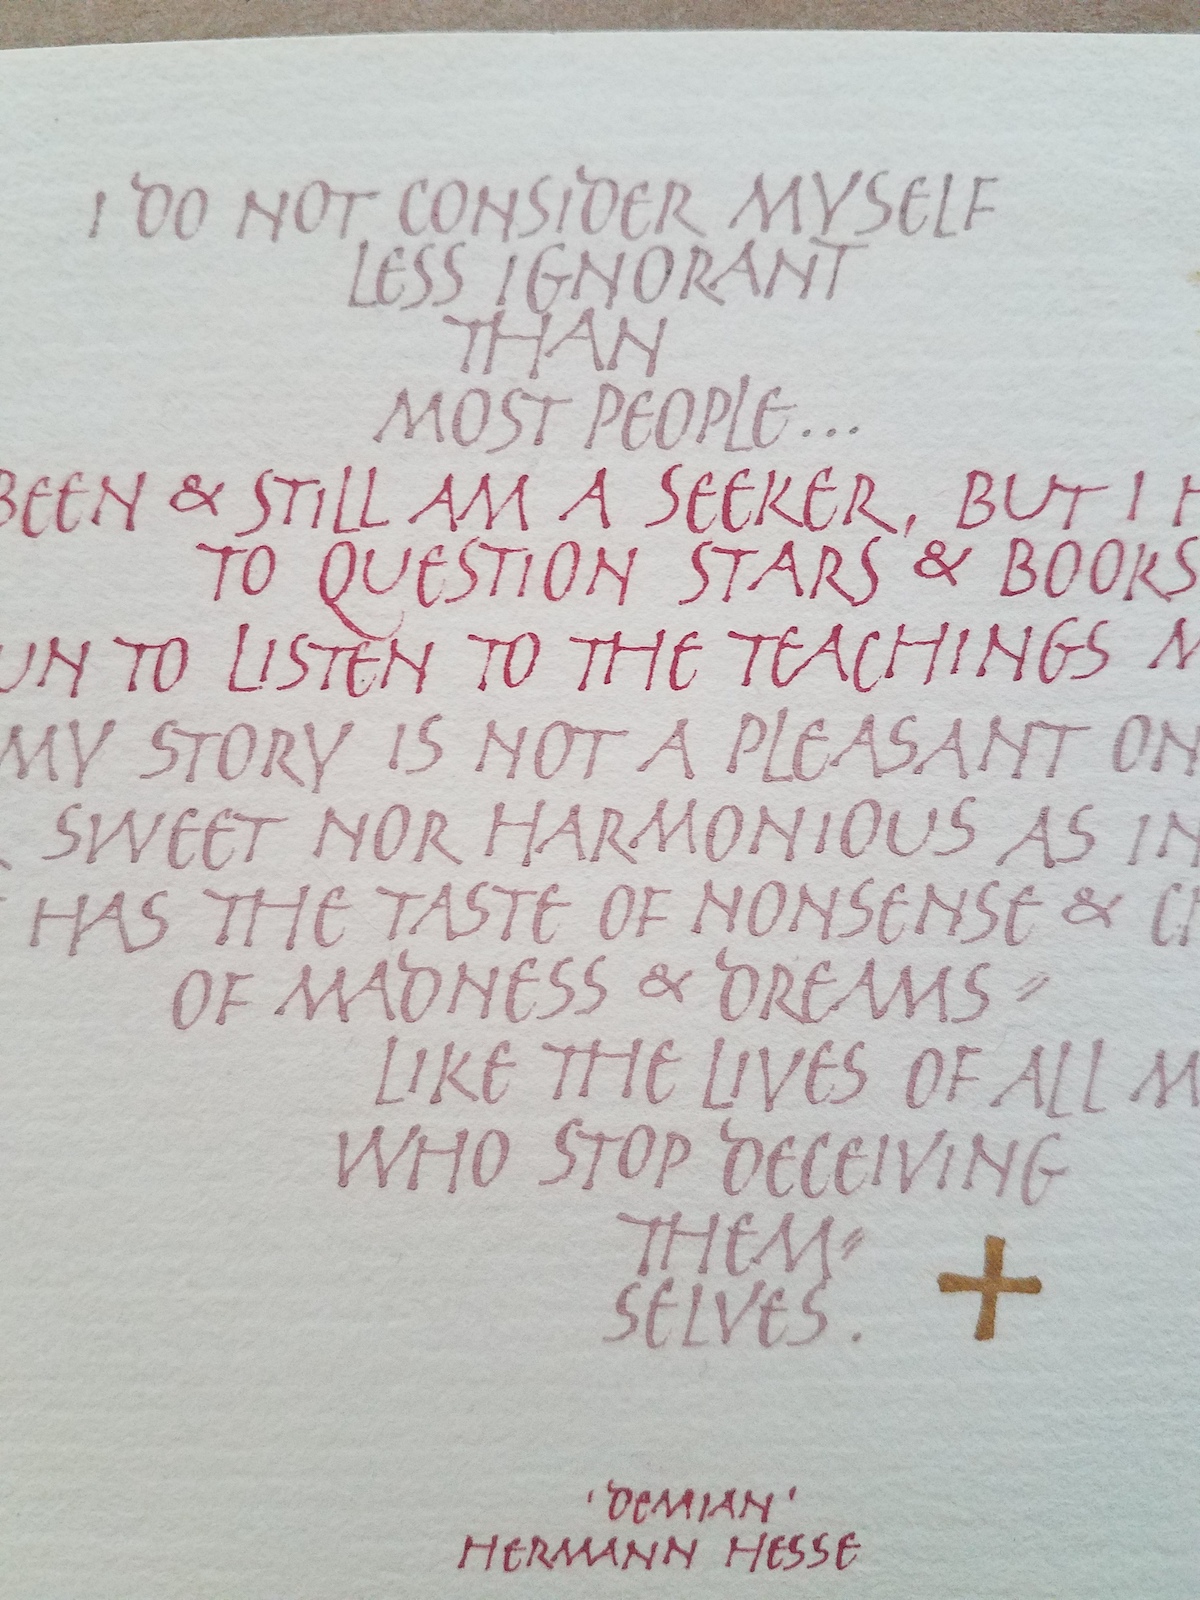 I DO NOT CONSIDER MYSELF
LESS IGNORANT
THAN
MOST PEOPLE...
BEEN & STILL AM A SEEKER, BUT I
TO QUESTION STARS & BOOKS
TO LISTEN TO THE TEACHINGS
MY STORY IS NOT A PLEASANT
SWEET NOR HARMONIOUS AS
HAS THE TASTE OF NONSENSE &
OF MADNESS & DREAMS =
LIKE THE LIVES OF ALL
WHO STOP DECEIVING
THEM=
SELVES.
'DEMIAN'
HERMANN HESSE